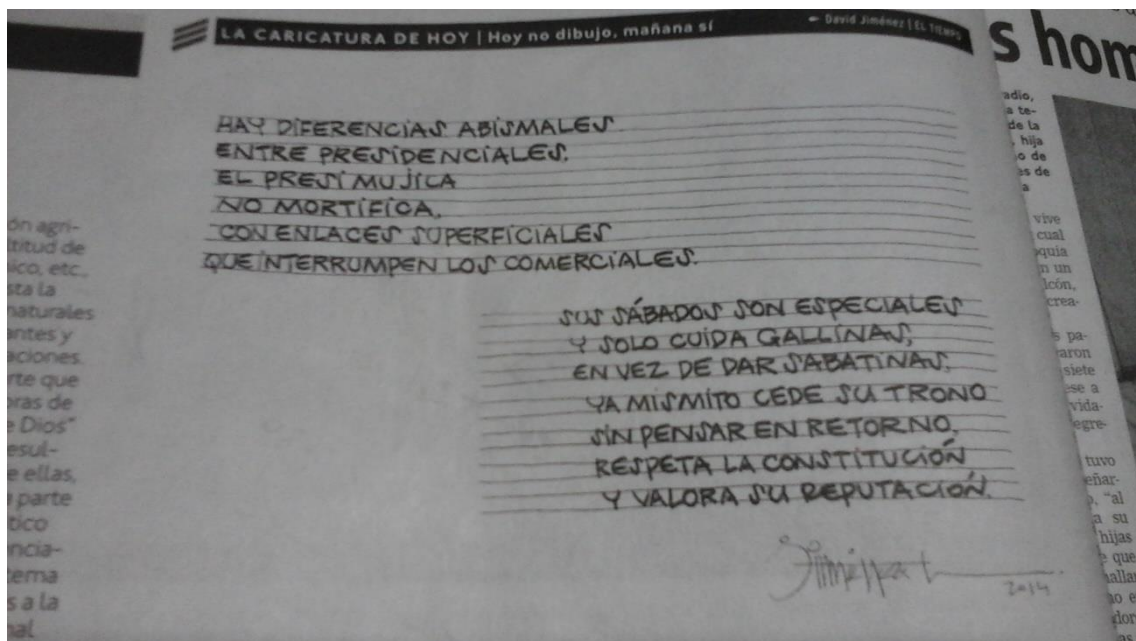 LA CARICATURA DE HOY | Hoy no dibujo, mañana sí
David Jiménez | EL TIEMPO
HAY DIFERENCIAS ABISMALES
ENTRE PRESIDENCIALES.
EL PRESI MUJICA
NO MORTIFICA,
CON ENLACES SUPERFICIALES
QUE INTERRUMPEN LOS COMERCIALES.
SUS SÁBADOS SON ESPECIALES
Y SOLO CUIDA GALLINAS,
EN VEZ DE DAR SABATINAS,
YA MISMITO CEDE SU TRONO
SIN PENSAR EN RETORNO,
RESPETA LA CONSTITUCIÓN
Y VALORA SU REPUTACIÓN.
2014
ón agri-
titud de
ico, etc.,
sta la
naturales
antes y
aciones.
rte que
oras de
e Dios"
esul-
e ellas,
a parte
tico
ncia-
tema
s a la
nal
s hom
adio,
a te-
de la
, hija
o de
es de
a
vive
cual
oquia
n un
lcón,
crea-
s pa-
aron
siete
ese a
vida-
egre-
tuvo
eñar-
o, "al
a su
hijas
e que
hallar
no e
dor